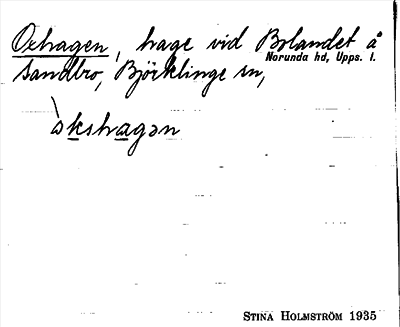 Oxhagen, hage vid Brlandet å
Norunda hd, Upps. l.
Sandbro, Björklinge sn,
òkshagən
STINA HOLMSTRÖM 1935